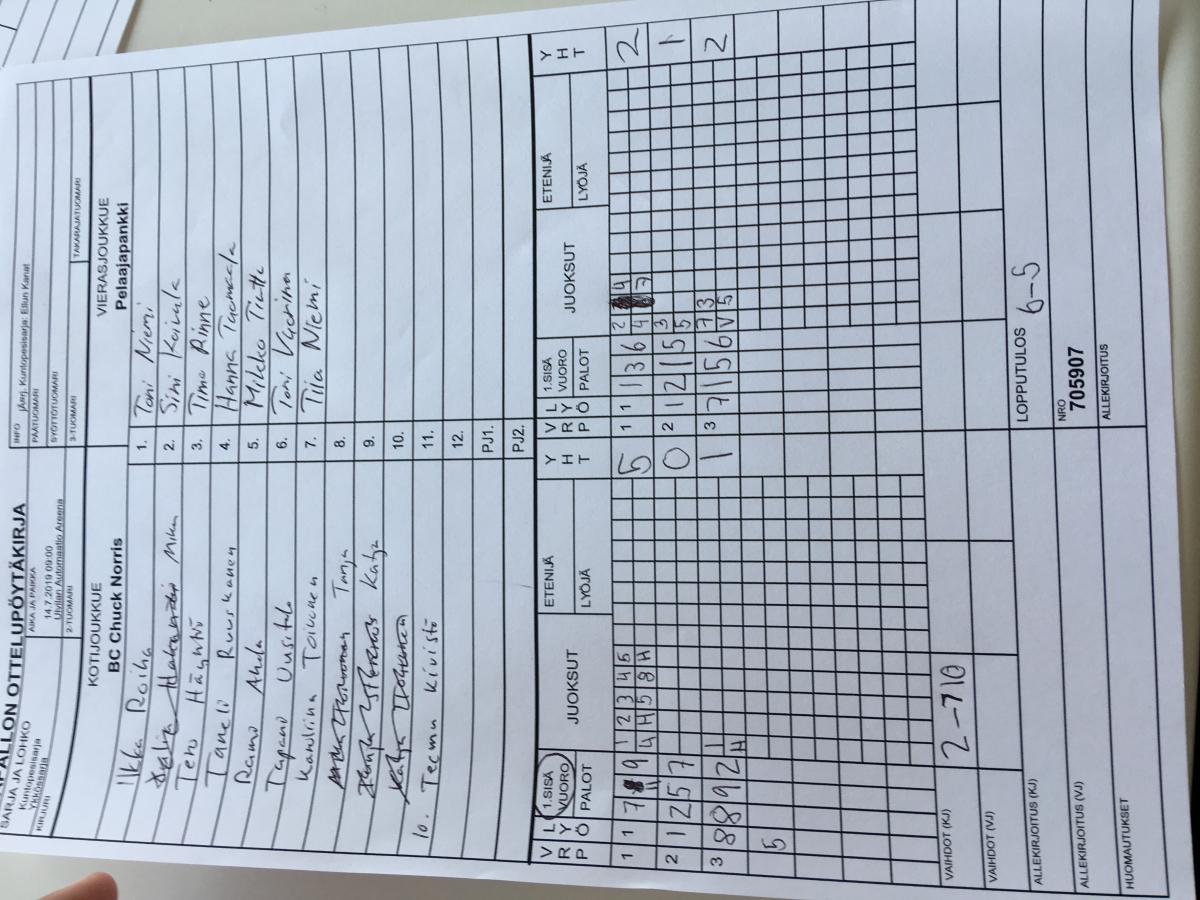 PALLON OTTELUPÖYTÄKIRJA
SARJA JA LOHKO
Kuntopesisarja
Ykkössarja
AIKA JA PAIKKA
14.7.2019 09:00
Ulvilan Automaatio Areena
INFO
PÄÄTUOMARI
SYÖTTÖTUOMARI
KIRJURI
2-TUOMARI
3-TUOMARI
TAKARAJATUOMARI
KOTIJOUKKUE
BC Chuck Norris
VIERASJOUKKUE
Pelaajapankki
Ilkka Roiha 1. Toni Niemi
Mika 2. Sini Koivula
Tero Häyhtiö 3. Timo Rinne
Taneli Ruuskanen 4. Hanna Tuomaala
Raimo Ahola 5. Mikko Tiette
Tapani Uusitalo 6. Toni Vaarima
Karoliina Toivonen 7. Tiia Niemi
Tanja 8.
Katja 9.
10.
10. Teemu Kivistö 11.
12.
PJ1.
PJ2.
VRP LYÖ 1.SISÄ VUORO PALOT JUOKSUT ETENIJÄ LYÖJÄ YHT VRP LYÖ 1.SISÄ VUORO PALOT JUOKSUT ETENIJÄ LYÖJÄ YHT
1 1 7 9 11 1 2 3 4 5 5 1 1 1 3 6 2 4 2
4 H 5 8 H 4 7
2 1 2 5 7 0 2 1 2 1 5 5 3 1
5
3 8 8 9 2 1 1 3 7 1 5 6 7 3 2
H V 5
5
VAIHDOT (KJ) 2-710
VAIHDOT (VJ)
LOPPUTULOS 6-5
ALLEKIRJOITUS (KJ)
NRO
705907
ALLEKIRJOITUS (VJ)
ALLEKIRJOITUS
HUOMAUTUKSET